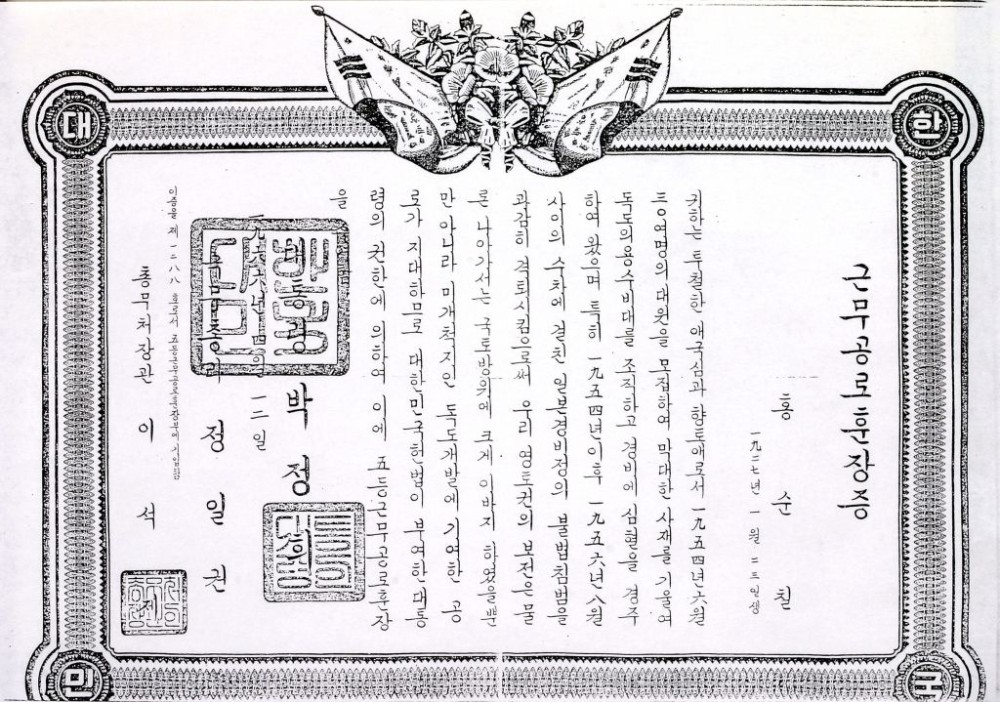 대 한 민 국
근무공로훈장증
홍 순 칠
一九二七년 一월 二三일생
귀하는 투철한 애국심과 향토애로서 一九五四년六월
三○여명의 대원을 모집하여 막대한 사재를 기울여
독도의용수비대를 조직하고 경비에 심혈을 경주
하여 왔으며 특히 一九五四년이후 一九五六년八월
사이의 수차에 걸친 일본경비정의 불법침범을
과감히 격퇴시킴으로써 우리 영토권의 보전은 물
론 나아가서는 국토방위에 크게 이바지 하였을뿐
만 아니라 미개척지인 독도개발에 기여한 공
로가 지대하므로 대한민국헌법이 부여한 대통
령의 권한에 의하여 이에 五등근무공로훈장
을
대통령 박 정 희
一九六六년 四월 一二일
국무총리 정 일 권
이증을 제 一二八八 호로서 五등근무공로훈장부에 기입함
총무처장관 이 석 제